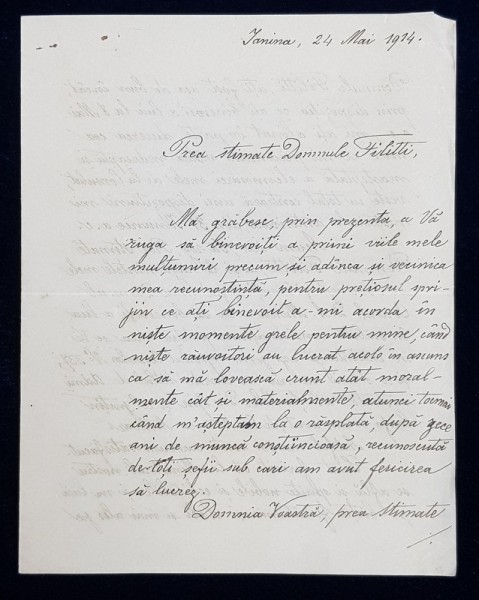 Ianina, 24 Mai 1914.
Prea stimate Domnule Filitti,
Mă grăbesc, prin prezenta, a Vă
ruga să binevoiți a primi viile mele
mulțumiri precum și adînca și vecinica
mea recunoștință, pentru prețiosul spri-
jin ce ați binevoit a-mi acorda în
niște momente grele pentru mine, când
niște răuvoitori au lucrat acolo în ascuns
ca să mă lovească crunt atât moral-
mente cât și materialmente, atunci tocmai
când m'așteptam la o răsplată, după zece
ani de muncă conștiincioasă, recunoscută
de toți șefii sub cari am avut fericirea
să lucrez.
Domnia Voastră, prea stimate